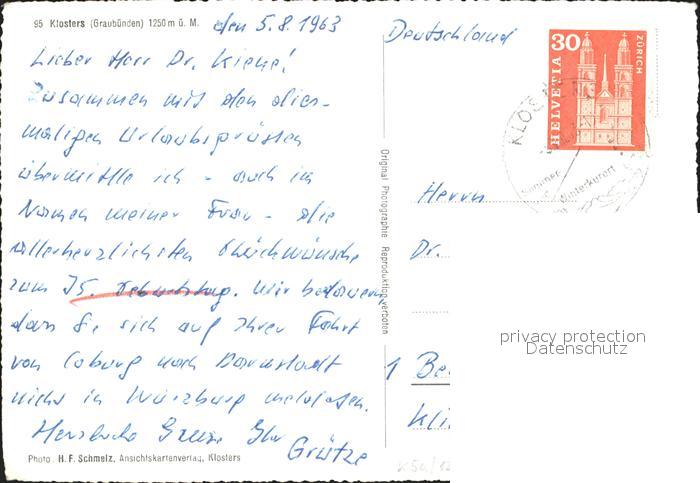 95 Klosters (Graubünden) 1250 m ü. M.
den 5.8.1963
Lieber Herr Dr. Kiene!
Zusammen mit den dies-
maligen Urlaubsgrüßen
übermittle ich - auch im
Namen meiner Frau - die
allerherzlichsten Glückwünsche
zum 75. Geburtstag. Wir bedauern,
dass Sie sich auf Ihrer Fahrt
von Coburg nach Darmstadt
nicht in Würzburg meldeten.
Herzliche Grüsse Ihr
Grütze
Photo: H. F. Schmelz, Ansichtskartenverlag, Klosters
Original Photographie Reproduktion verboten
Deutschland
30
HELVETIA
ZÜRICH
KLOSTERS
Sommer
Winterkurort
Herrn
Dr.
1 Be
Kli
privacy protection
Datenschutz